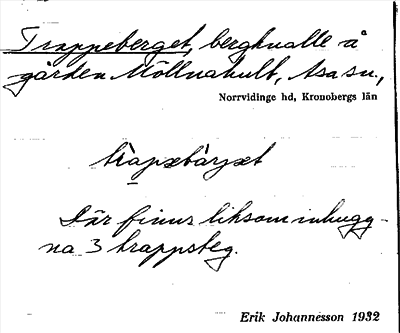 Trappeberget, bergknalle å
gården Möllnahult, Asa sn.,
Norrvidinge hd, Kronobergs län
Där finns liksom inhugg-
na 3 trappsteg.
Erik Johannesson 1932